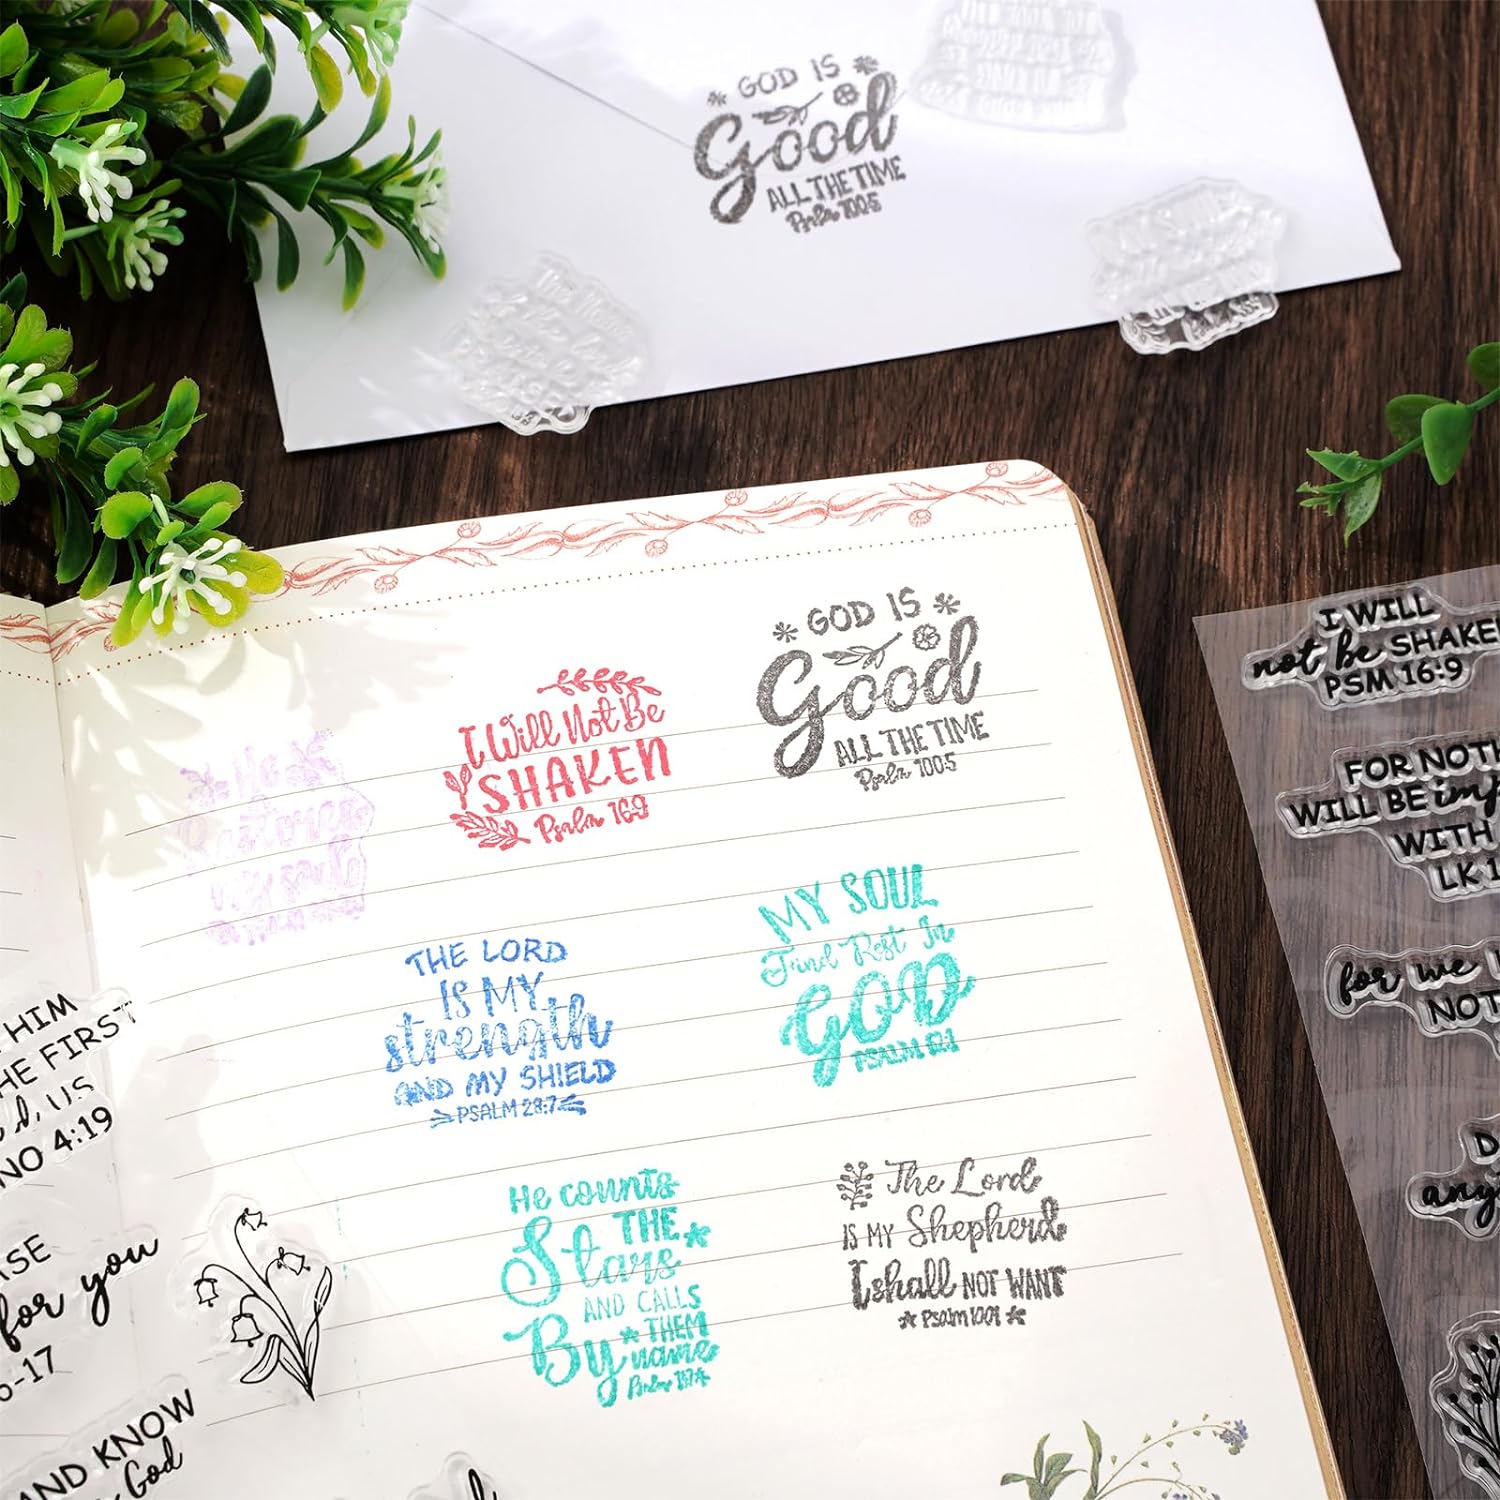 GOD IS
Good
ALL THE TIME
Psalm 100:5
GOD IS
Good
ALL THE TIME
Psalm 100:5
I Will Not Be
SHAKEN
Psalm 16:9
He
Restores
my soul
THE LORD
IS MY
strength
AND MY SHIELD
PSALM 28:7
MY SOUL
Find Rest In
GOD
PSALM
He counts
THE
Stars
AND CALLS
By THEM
name
Psalm
The Lord
IS MY Shepherd
I shall NOT WANT
PSALM
HIM
HE FIRST
d, US
NO 4:19
ISE
for you
-17
AND KNOW
God
I WILL
not be SHAKE
PSM 16:9
FOR NOTH
WILL BE imp
WITH
LK 1
for we
NOT
D
any